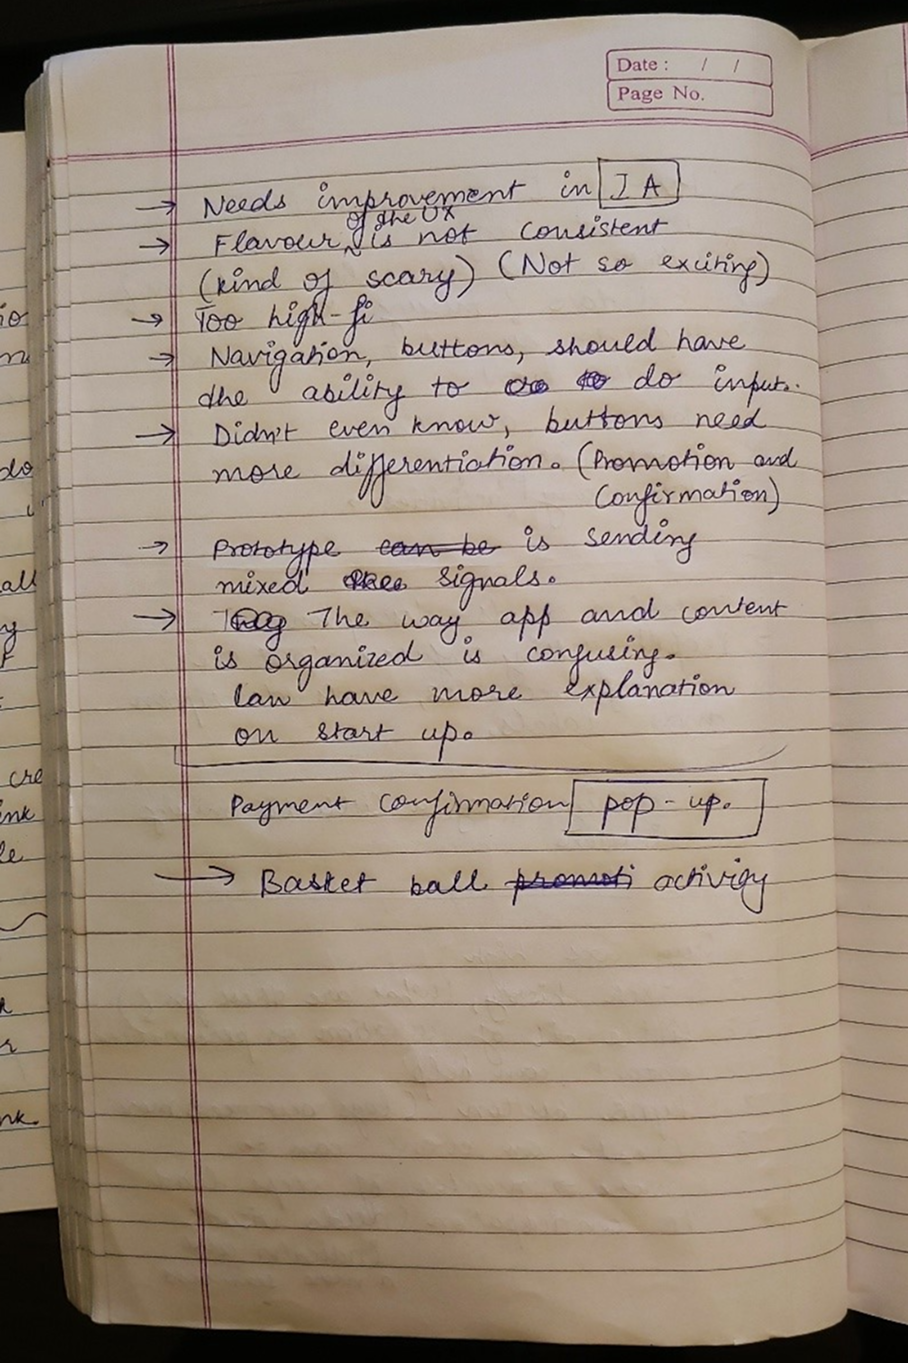 Date : / /
Page No.
→ Needs improvement in I A
of the UX
→ Flavour is not consistent
(kind of scary) (Not so exciting)
→ Too high-fi
→ Navigation, buttons, should have
the ability to do input.
→ Didn't even know, buttons need
more differentiation. (Promotion and
Confirmation)
→ Prototype can be is sending
mixed signals.
→ The way app and content
is organized is confusing.
Can have more explanation
on start up.
Payment Confirmation pop-up.
→ Basket ball promoti activity